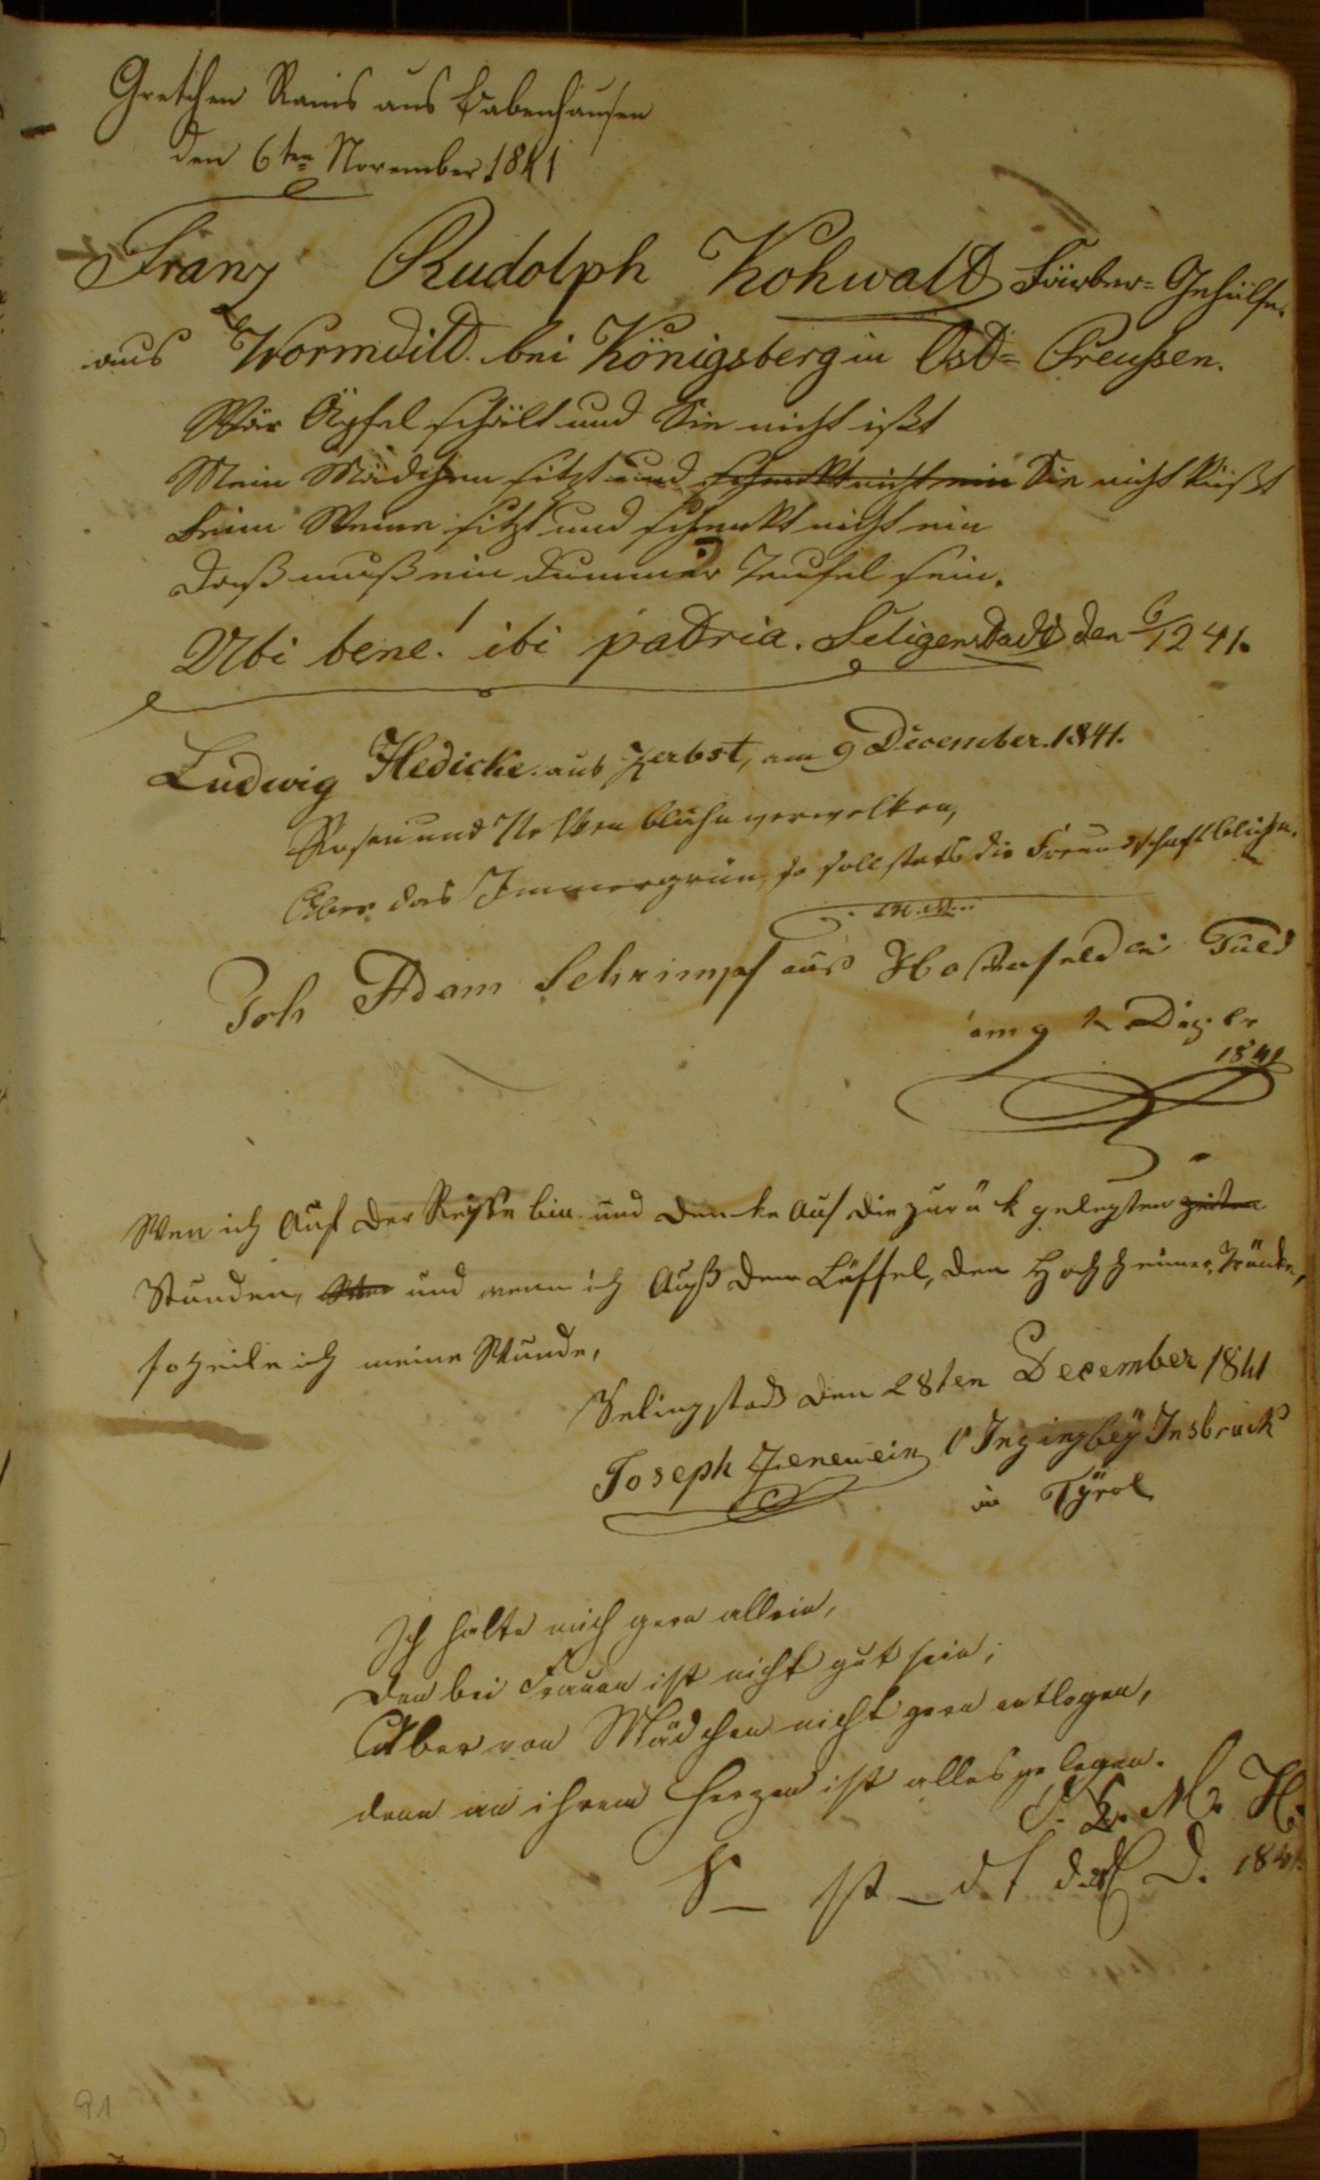 Gretchen Rains aus Babenhausen
den 6ten November 1841
Franz Rudolph Kohwald Färber-Gehülfe.
aus Wormditt bei Königsberg in Ost-Preußen.
Wär Äpfel schält und Sie nicht ißt
Mein Mädchen sitzt und schenkt nicht ein Sie nicht küßt
Beim Weine sitzt und schenkt nicht ein
Daß muß ein dummer Teufel sein.
Ubi bene! ibi patria. Seligenstadt den 6/12 41.
Ludwig Hedicke. aus Zerbst, am 9 December. 1841.
Rosen und Nelken blühn verwelken,
Aber das Immergrün, so soll stets die Freundschaft blühn.
Joh Adam Schrimpf aus Hosenfeld bei Fuld
am 9 Dezbr
1841
Wen ich Auf der Reyße bin und denke Auf die zurück gelegten zeiten
Stunden, und wenn ich Auß dem Löffel, den Hochheimer Tränke,
so heile ich meine Wunde,
Selingstadt den 28ten December 1841
Joseph Jenewein bey Insbruck
in Tÿrol
Ich halte mich gern allein,
den bei Frauen ist nicht gut sein;
Aber von Mädchen nicht gern entlegen,
denn an ihrem Herzen ist alles gelegen.
M. H.
S_ st_dt D. 1841.
91